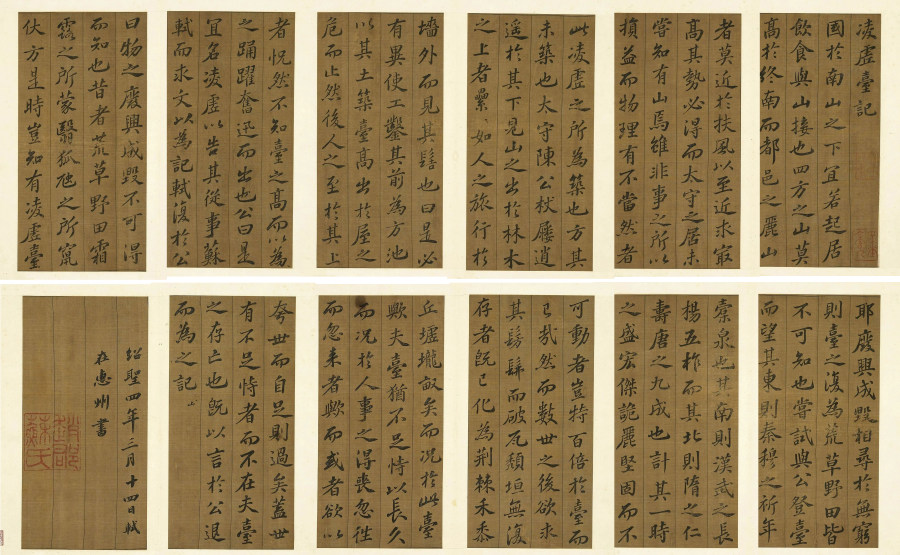 凌虛臺記
國於南山之下宜若起居
飲食與山接也四方之山莫
高於終南而都邑之麗山
者莫近於扶風以至近求冣
高其勢必得而太守之居未
嘗知有山焉雖非事之所以
損益而物理有不當然者
此凌虛之所為築也方其
未築也太守陳公杖屨逍
遙於其下見山之出於林木
之上者纍〻如人之旅行於
墻外而見其髻也曰是必
有異使工鑿其前為方池
以其土築臺高出於屋之
危而止然後人之至於其上
者怳然不知臺之高而以為
之踊躍奮迅而出也公曰是
宜名凌虛以告其從事蘇
軾而求文以為記軾復於公
曰物之廢興成毀不可得
而知也昔者荒草野田霜
露之所蒙翳狐虺之所竄
伏方是時豈知有凌虛臺
耶廢興成毀相尋於無窮
則臺之復為荒草野田皆
不可知也嘗試與公登臺
而望其東則秦穆之祈年
橐泉也其南則漢武之長
楊五柞而其北則隋之仁
壽唐之九成也計其一時
之盛宏傑詭麗堅固而不
可動者豈特百倍於臺而
已哉然而數世之後欲求
其髣髴而破瓦頹垣無復
存者既已化為荆棘禾黍
丘墟壠畝矣而況於此臺
歟夫臺猶不足恃以長久
而況於人事之得喪忽往
而忽來者歟而或者欲以
夸世而自足則過矣蓋世
有不足恃者而不在夫臺
之存亡也既以言於公退
而為之記
紹聖四年三月十四日軾
在惠州書
趙郡
蘇氏